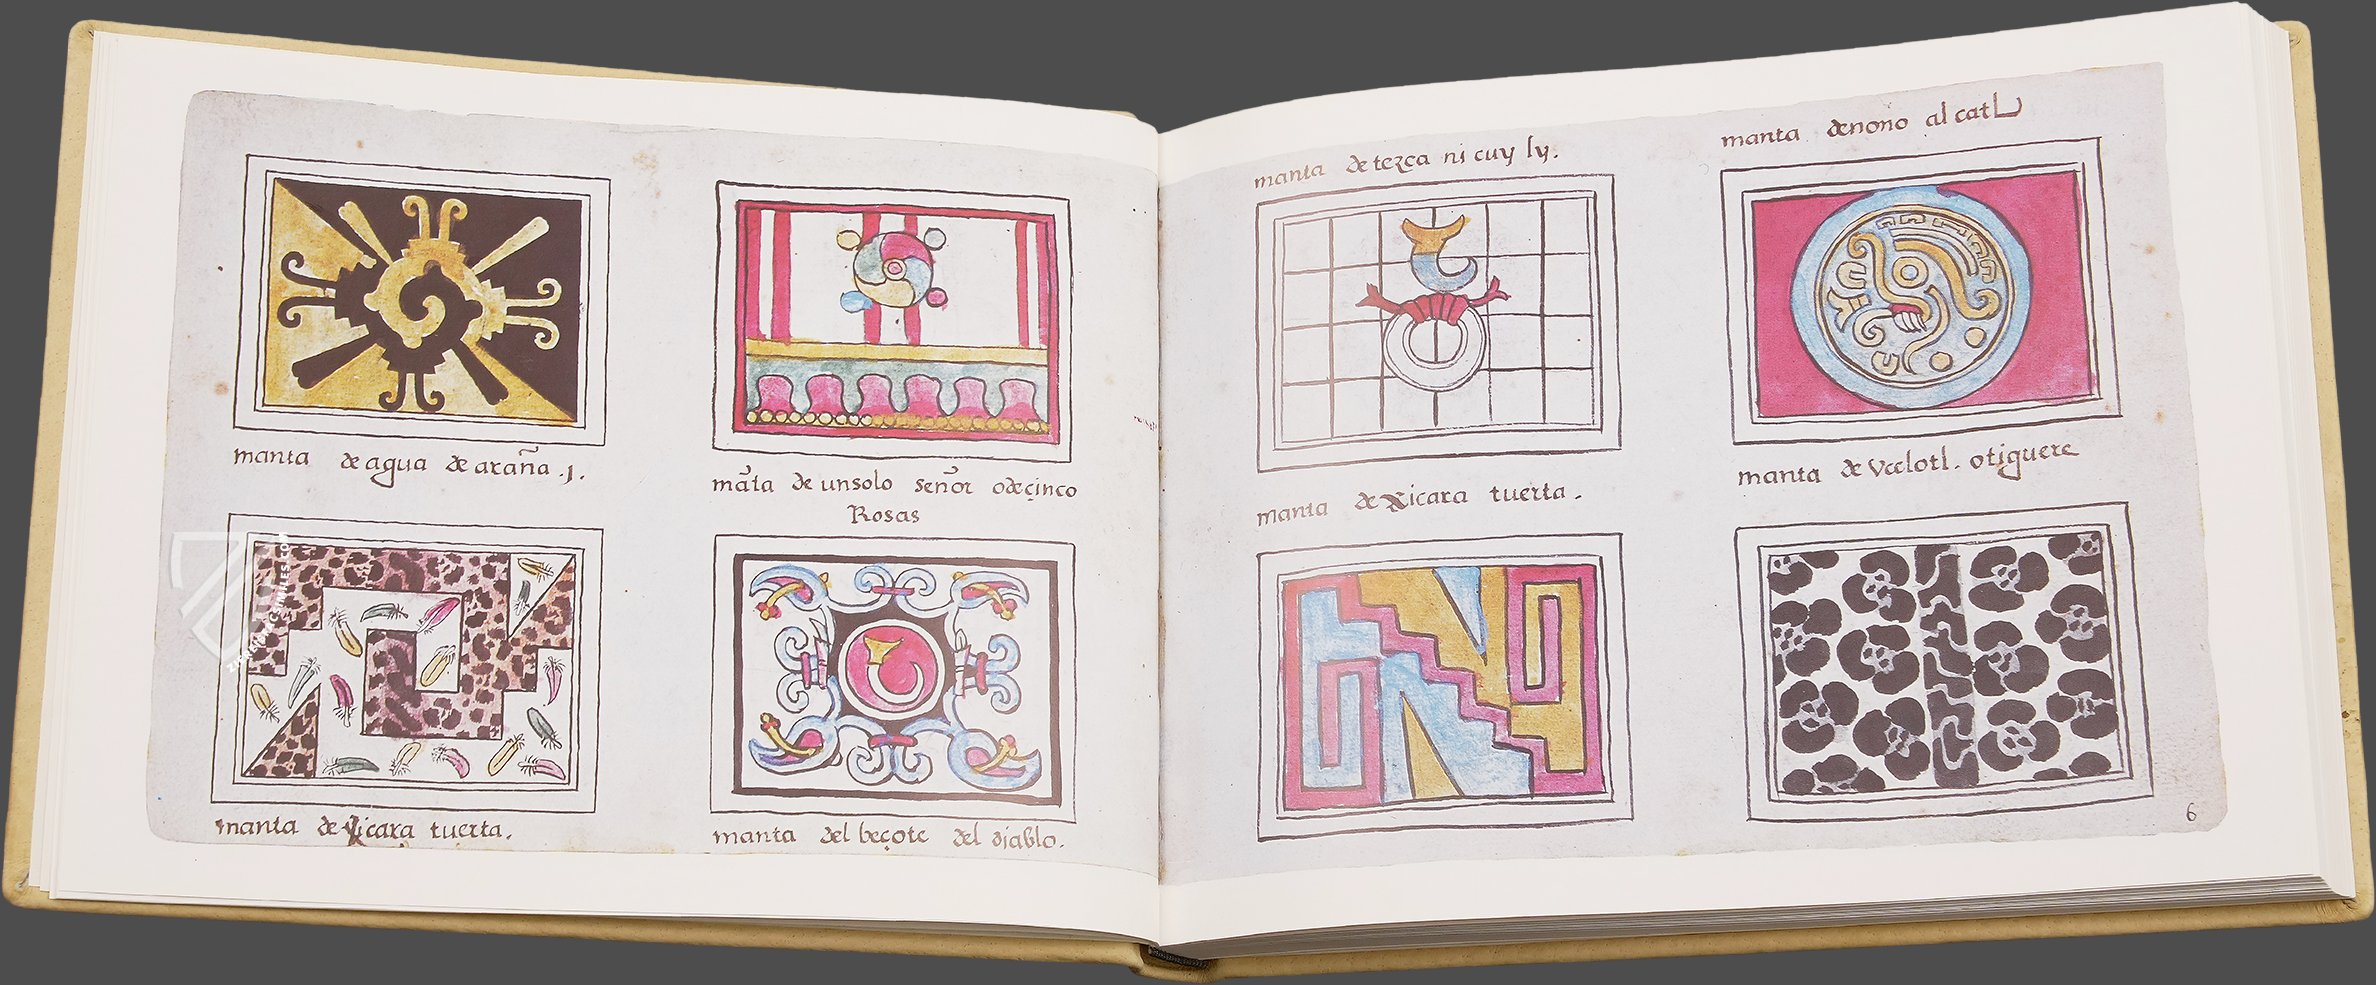 manta de agua de araña .j.
mãta de unsolo señor o de çinco
Rosas
manta de xicara tuerta.
manta del beçote del diablo.
manta de tezca ni cuy ly.
manta de nono al catl
manta de xicara tuerta.
manta de Ucelotl. o tiguere
6
ZIEREIS FACSIMILES.COM